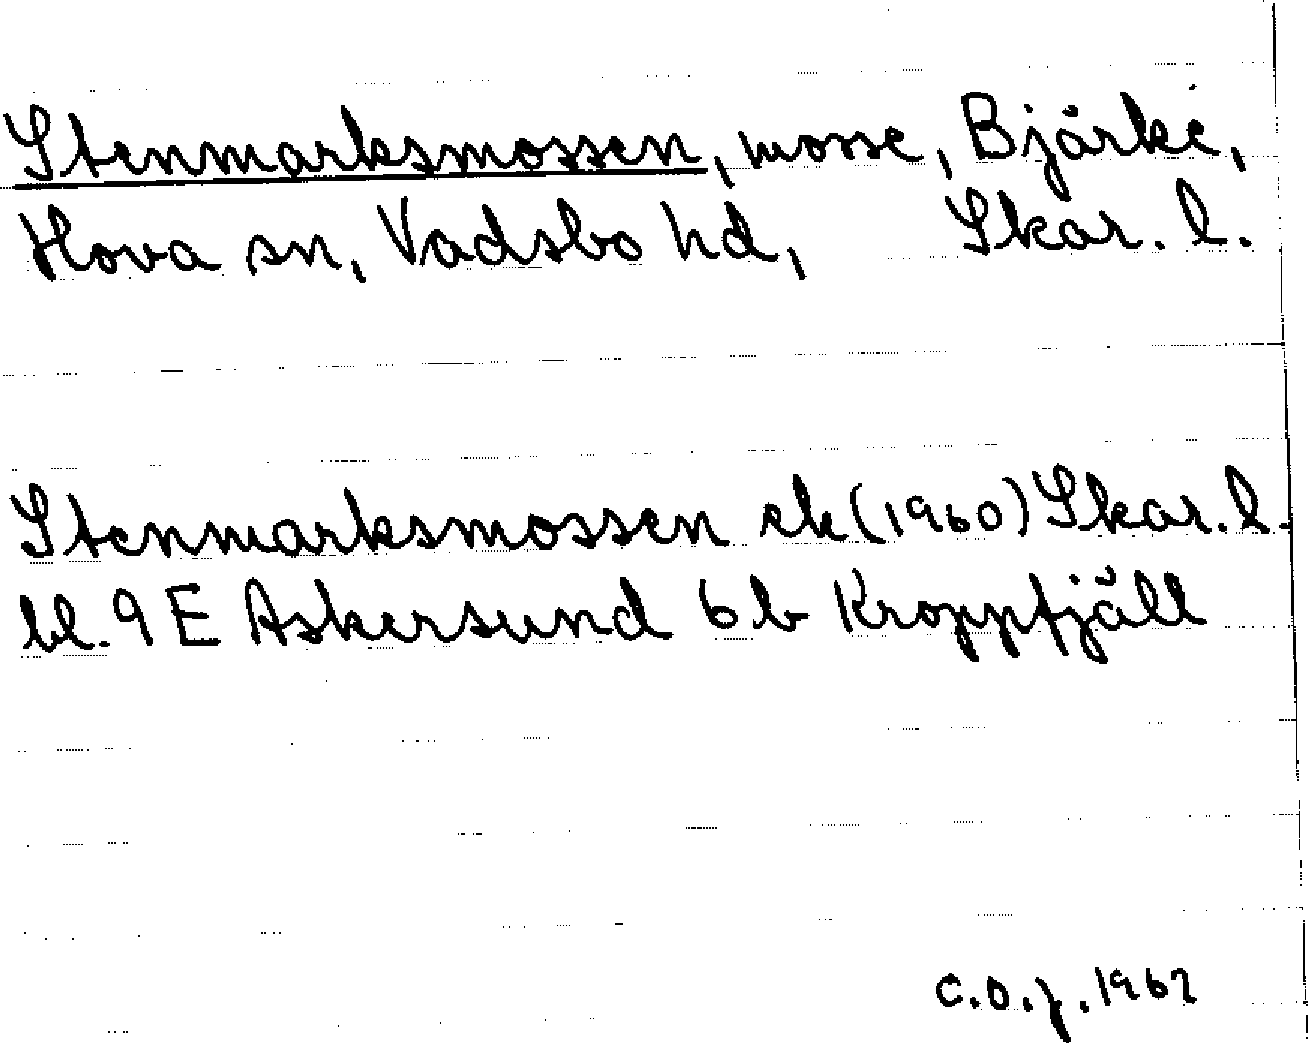 Stenmarksmossen, mosse, Bjärke,
Hova sn, Vadsbo hd, Skar. l.
Stenmarksmossen ek (1960) Skar. l.
bl. 9 E Askersund 6 b Kroppfjäll
C.O.J. 1962